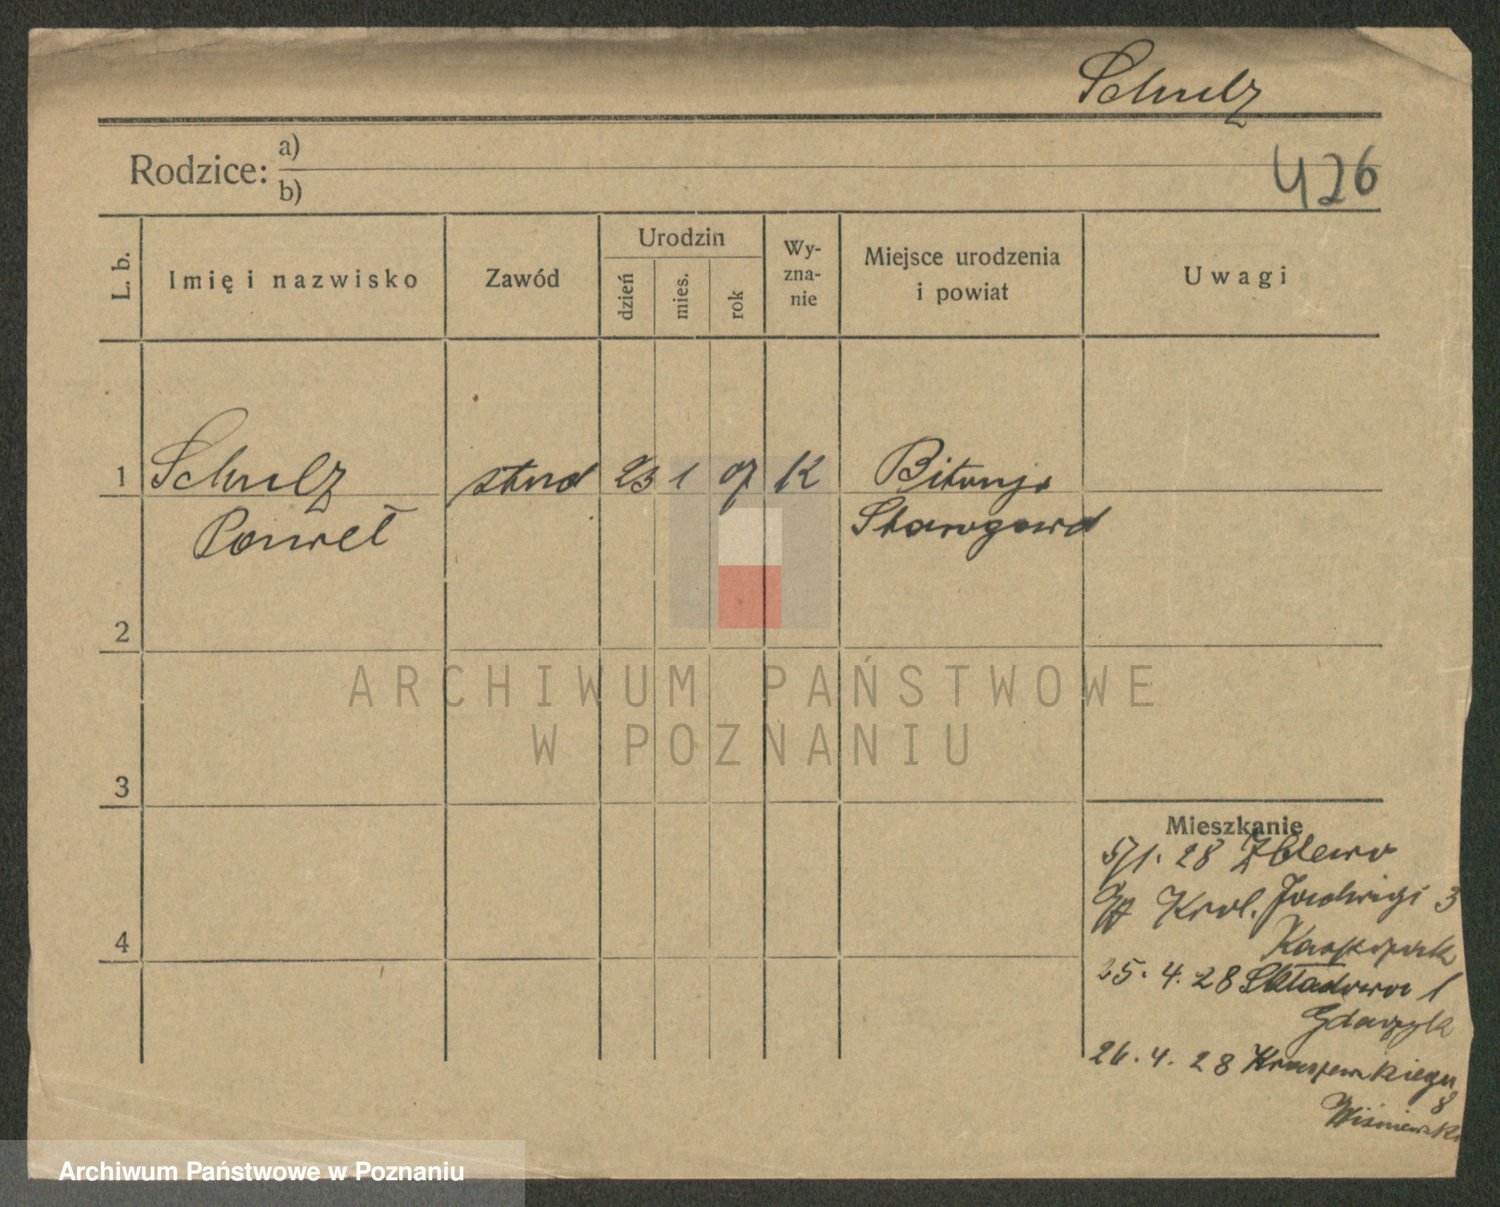 Schulz
Rodzice:
a)
b)
426
L. b.
Imię i nazwisko
Zawód
Urodzin
dzień
mies.
rok
Wy-
zna-
nie
Miejsce urodzenia
i powiat
Uwagi
1 Schulz stud 23 1 07 K Bitonja
Paweł Starogard
2
3
4
Mieszkanie
5/1. 28 Zblewo
Krol. Jadwigi 3
25. 4. 28 Składowa 1
26. 4. 28 Kraszewskiego
8
Wiśniewski
ARCHIWUM PAŃSTWOWE
W POZNANIU
Archiwum Państwowe w Poznaniu